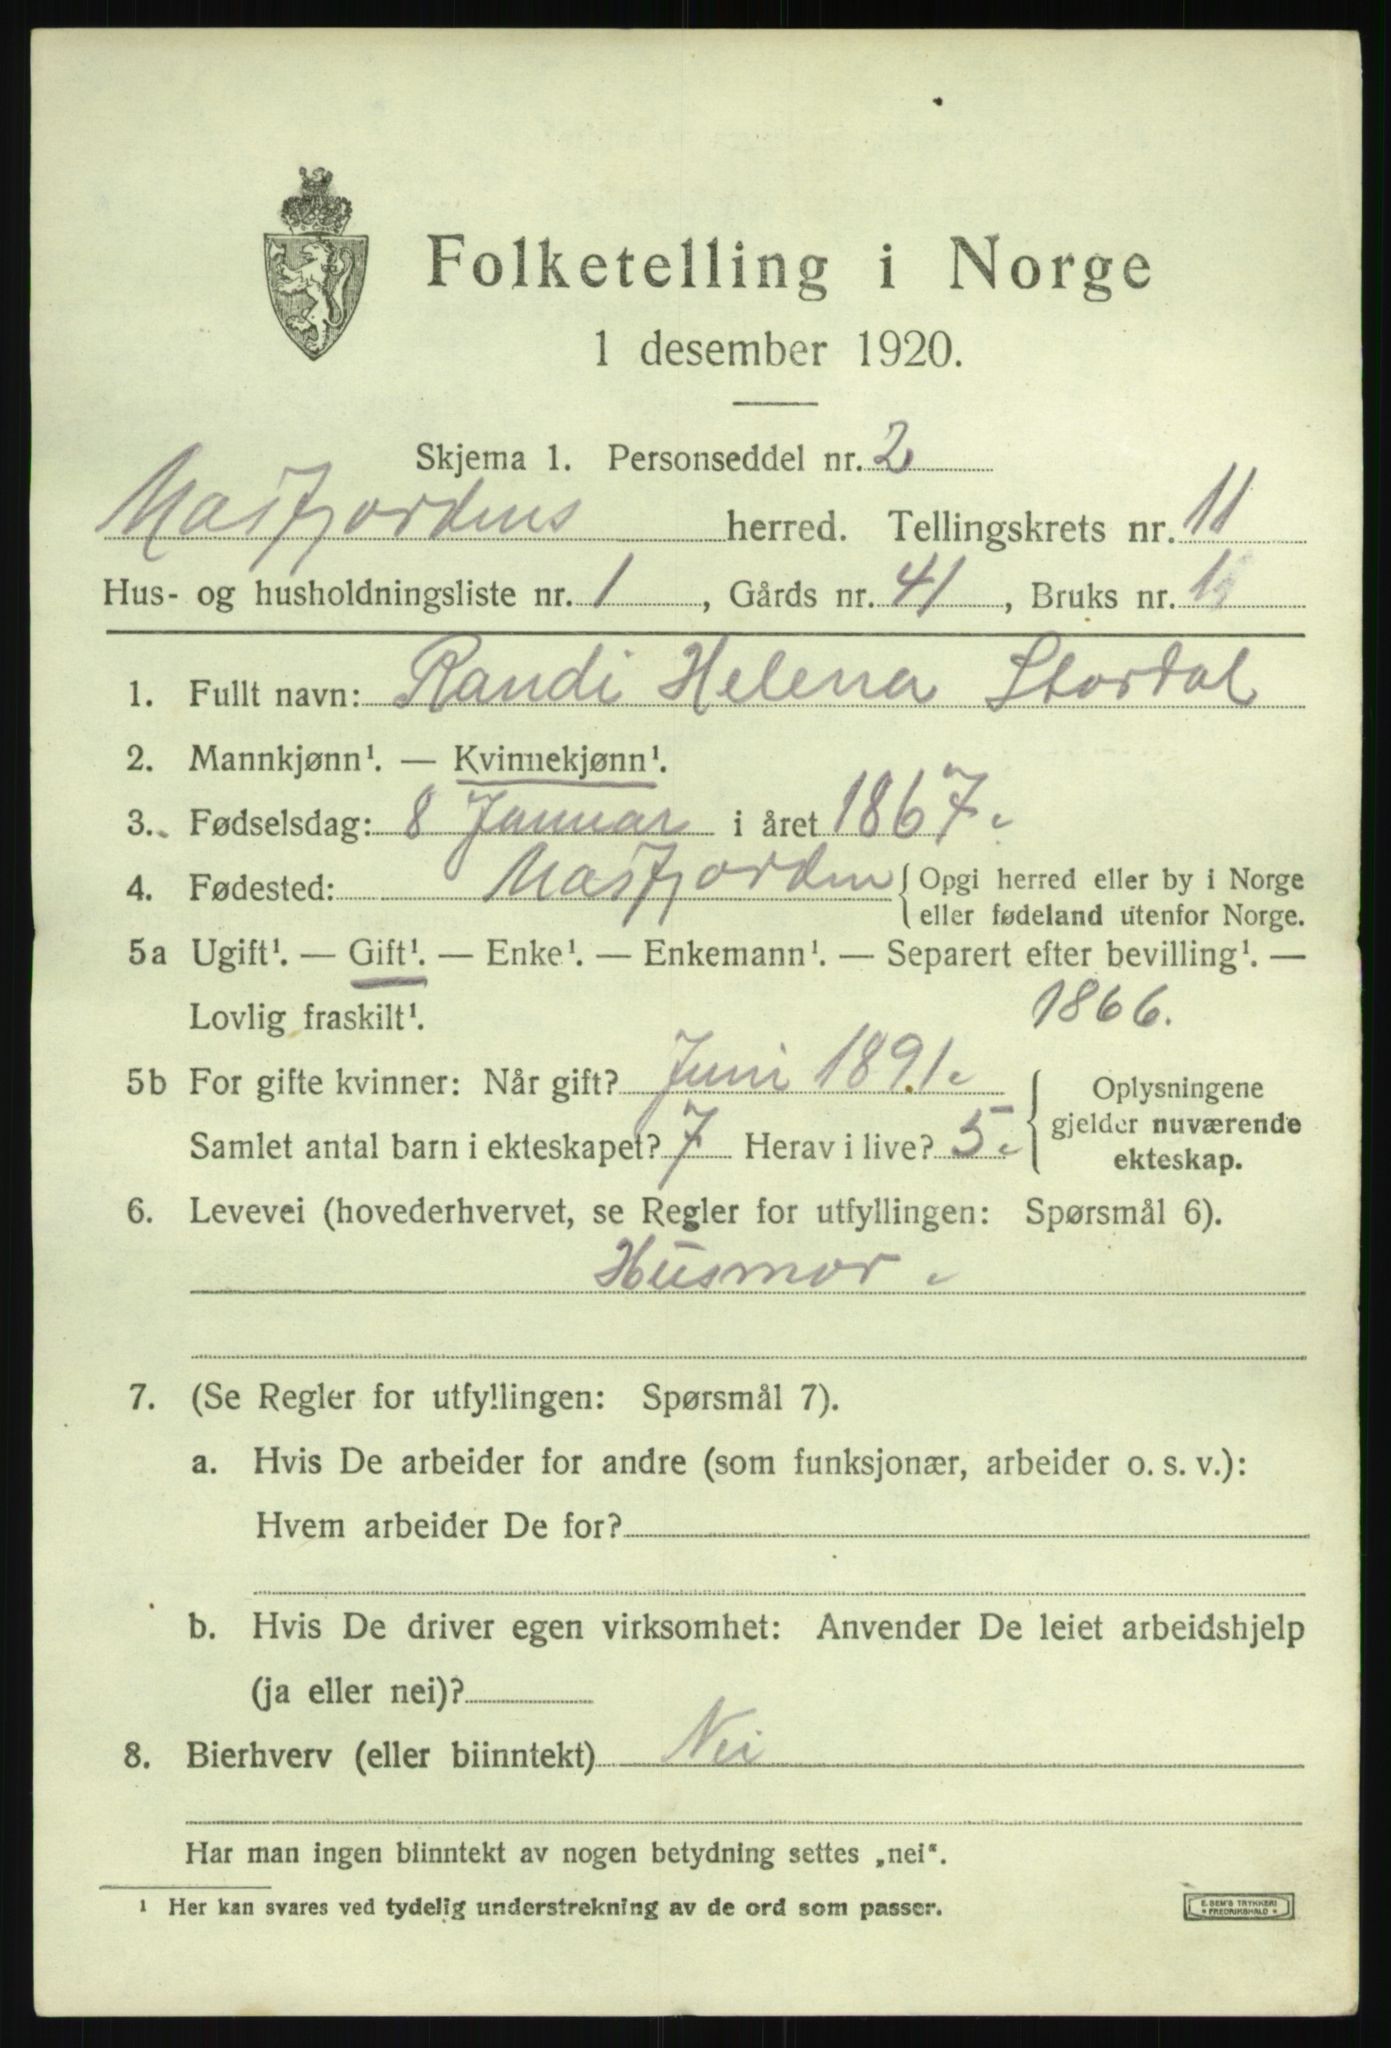 Folketelling i Norge
1 desember 1920.
Skjema 1. Personseddel nr. 2
Masfjordens herred. Tellingskrets nr. 11
Hus- og husholdningsliste nr. 1, Gårds nr. 41, Bruks nr. 1
1. Fullt navn: Randi Helena Stordal
2. Mannkjønn¹. — Kvinnekjønn¹.
3. Fødselsdag: 8 Januar i året 1867.
4. Fødested: Masfjorden {Opgi herred eller by i Norge
eller fødeland utenfor Norge.
5a Ugift¹. — Gift¹. — Enke¹. — Enkemann¹. — Separert efter bevilling¹. —
Lovlig fraskilt¹. 1866.
5b For gifte kvinner: Når gift? Juni 1891. { Oplysningene
gjelder nuværende
ekteskap.
Samlet antal barn i ekteskapet? 7 Herav i live? 5.
6. Levevei (hovederhvervet, se Regler for utfyllingen: Spørsmål 6).
Husmor.
7. (Se Regler for utfyllingen: Spørsmål 7).
a. Hvis De arbeider for andre (som funksjonær, arbeider o. s. v.):
Hvem arbeider De for?
b. Hvis De driver egen virksomhet: Anvender De leiet arbeidshjelp
(ja eller nei)?
8. Bierhverv (eller biinntekt) Nei
Har man ingen biinntekt av nogen betydning settes „nei“.
¹ Her kan svares ved tydelig understrekning av de ord som passer.
E. SEM'S TRYKKERI
* FREDRIKSHALD *